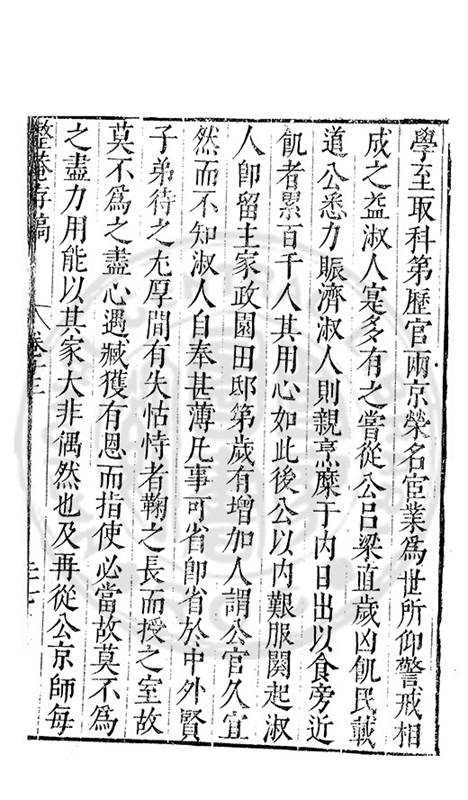 學至取科第歷官兩京榮名宦業為世所仰警戒相
成之益淑人寔多有之嘗從公呂梁直歲凶飢民載
道公悉力賑濟淑人則親烹糜于內日出以食旁近
飢者累百千人其用心如此後公以內艱服闋起淑
人即留主家政園田邸第歲有增加人謂公官久宜
然而不知淑人自奉甚薄凡事可省即省於中外賢
子弟待之尢厚間有失怙恃者鞠之長而授之室故
莫不為之盡心遇臧獲有恩而指使必當故莫不為
之盡力用能以其家大非偶然也及再從公京師每
整菴存稿
卷十三